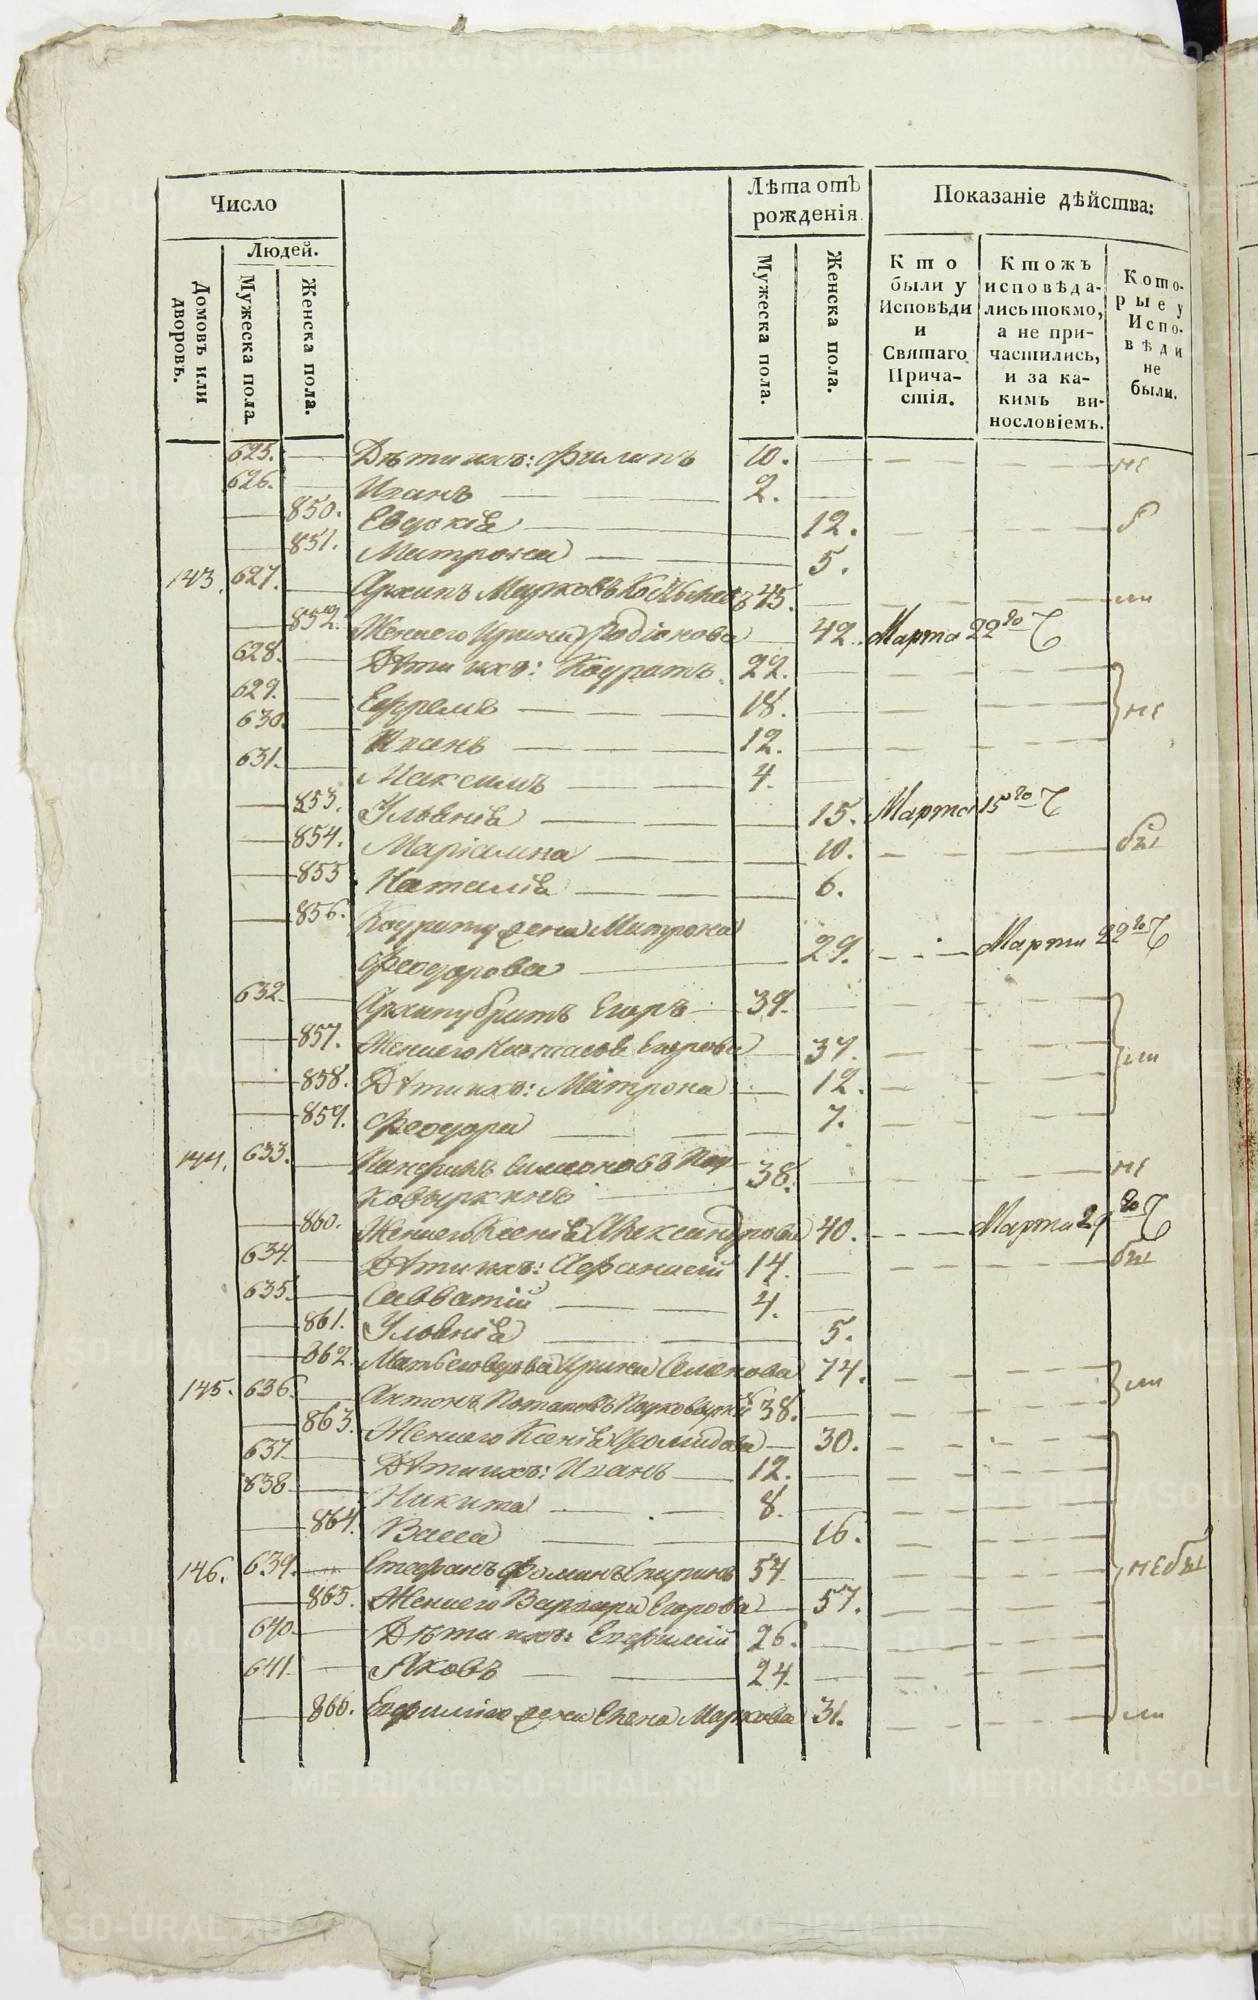 Число
Людей.
Домовъ или дворовъ.
Мужеска пола.
Женска пола.
Лѣта отъ рожденія.
Мужеска пола.
Женска пола.
Показаніе дѣйства:
Кто были у Исповѣди и Святаго Причастія.
Ктожъ исповѣдались токмо, а не причастились, и за какимъ винословіемъ.
Которые у Исповѣди не были.
625. Дѣти ихъ: Филипъ 10. не
626. Иванъ 2.
850. Евдокія 12.
851. Матрона 5.
143. 627. Архипъ Марковъ 45. ли
852. Жена его Ирина Родіонова 42. Марта 22го
628. Дѣти ихъ: Кодратъ 22.
629. Ефремъ 18. не
630. 12.
631. Максимъ 4.
853. Ульянія 15. Марта 15го
854. Маріамна 10. бы
855 Наталія 6.
856. Кодрату жена Матрона
Феодорова 29. Марта 22го
632. Архипу братъ Егоръ 39.
857. Жена его Наталья Егорова 37. ли
858. Дѣти ихъ: Матрона 12.
859. Феодора 7.
144. 633. Панфилъ Симоновъ
38. не
860. Жена его Ксенія Александрова 40. Марта 29го
634. Дѣти ихъ: Афанасій 14. бы
635. Савватій 4.
861. Ульянія 5.
862. Мать его вдова Ирина Семенова 74. ли
145. 636. Антонъ Потаповъ 38.
863. Жена его Ксенія 30.
637. Дѣти ихъ: Иванъ 12.
838 Никита 8.
864. Васса 16.
146. 639. Стефанъ Фоминъ Спиринъ 54. небы
865. Жена его Варвара Егорова 57.
640. Дѣти ихъ: Евфимій 26.
641. Яковъ 24.
866. Евфимію жена Елена Маркова 31. ли
METRIKI.GASO-URAL.RU